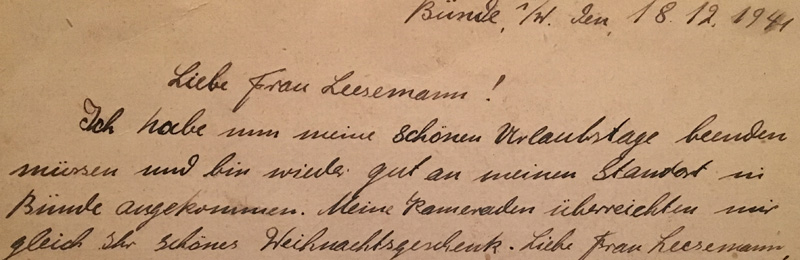 Bünde, i/W. den, 18.12.1941
Liebe Frau Leesemann!
Ich habe nun meine schönen Urlaubstage beenden
müssen und bin wieder gut an meinen Standort in
Bünde angekommen. Meine Kameraden überreichten mir
gleich Ihr schönes Weihnachtsgeschenk. Liebe Frau Leesemann,